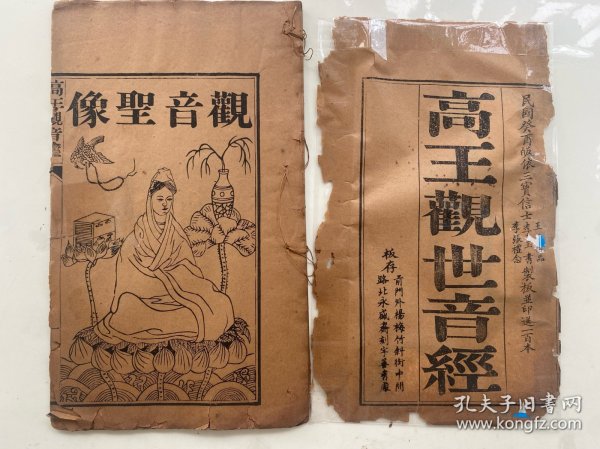 觀音聖像
高王觀音經
民國癸酉皈依三寶信士李
書製板並印送一百本
王
李張權念
高王觀世音經
板存
前門外楊梅竹斜街中間
路北永盛齋刻字鋪
孔夫子旧书网
www.kongfz.com